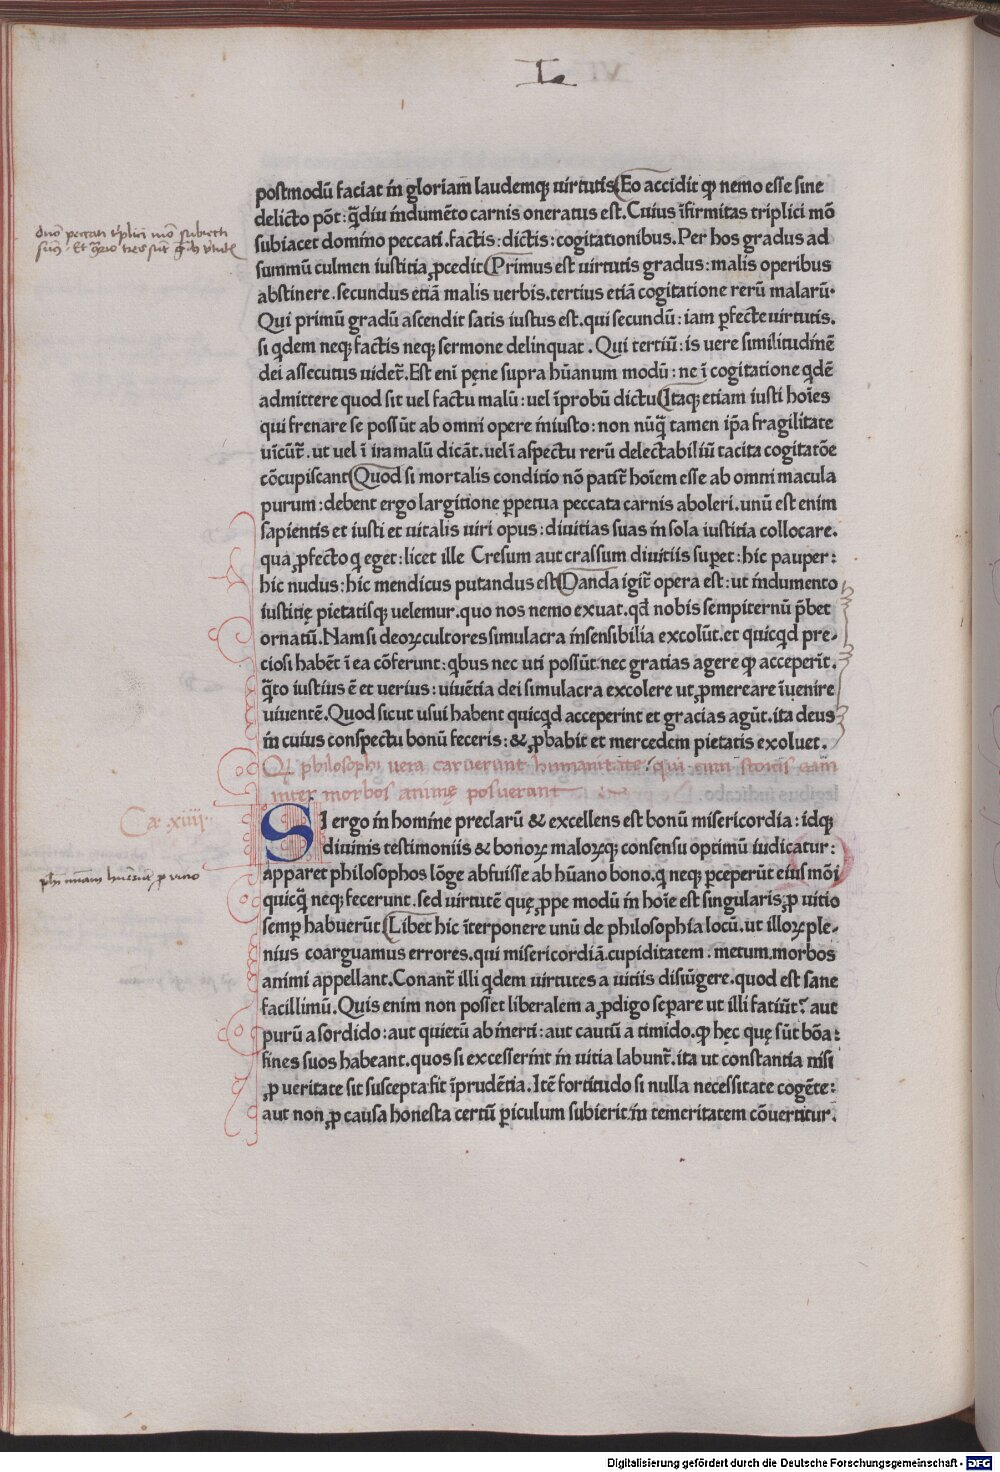 L
postmodū faciat in gloriam laudemq; uirtutis (Eo accidit ꝙ nemo esse sine
delicto pōt: q̄diu indumēto carnis oneratus est. Cuius īfirmitas triplici mō
subiacet domino peccati. factis: dictis: cogitationibus. Per hos gradus ad
summū culmen iustitia ꝓcedit (Primus est uirtutis gradus: malis operibus
abstinere. secundus etiā malis uerbis. tertius etiā cogitatione rerū malarū.
Qui primū gradū ascendit satis iustus est. qui secundū: iam ꝑfecte uirtutis.
si qdem neq; factis neq; sermone delinquat. Qui tertiū: is uere similitudinē
dei assecutus uidet̄. Est eni pęne supra hūanum modū: ne ī cogitatione qdē
admittere quod sit uel factu malū: uel īprobū dictu (Itaq; etiam iusti hoīes
qui frenare se possūt ab omni opere iniusto: non nūq̄ tamen ip̄a fragilitate
uīcūt̄. ut uel ī ira malū dicāt. uel ī aspectu rerū delectabiliū tacita cogitatōe
cōcupiscant (Quod si mortalis conditio nō patit̄ hoīem esse ab omni macula
purum: debent ergo largitione ꝑpetua peccata carnis aboleri. unū est enim
sapientis et iusti et uitalis uiri opus: diuitias suas in sola iustitia collocare.
qua ꝓfecto q eget: licet ille Cresum aut crassum diuitiis suꝑet: hic pauper:
hic nudus: hic mendicus putandus est (Danda igit̄ opera est: ut indumento
iustitię pietatisq; uelemur. quo nos nemo exuat. qd̄ nobis sempiternū p̄bet
ornatū. Nam si deoꝝ cultores simulacra insensibilia excolūt. et quicqd pre-
ciosi habēt ī ea cōferunt: qbus nec uti possūt nec gratias agere ꝙ acceperīt.
q̄to iustius ē et uerius: uiuētia dei simulacra excolere ut ꝓmereare īuenire
uiuentē. Quod sicut usui habent quicqd acceperint et gracias agūt. ita deus
in cuius conspectu bonū feceris: & ꝓbabit et mercedem pietatis exoluet.
Q philosophi uera caruerunt humanitate: qui cum stoicis eam
inter morbos animę posuerunt
Ca. xiiii.
SI ergo in homine preclarū & excellens est bonū misericordia: idq;
diuinis testimoniis & bonoꝝ maloꝝq; consensu optimū iudicatur:
apparet philosophos lōge abfuisse ab hūano bono. q neq; ꝑceperūt eius mōi
quicq̄ neq; fecerunt. sed uirtutē quę ꝓpe modū in hoīe est singularis ꝓ uitio
semꝑ habuerūt (Libet hic īterponere unū de philosophia locū. ut illoꝝ ple-
nius coarguamus errores. qui misericordiā. cupiditatem. metum. morbos
animi appellant. Conant̄ illi qdem uirtutes a uitiis disiūgere. quod est sane
facillimū. Quis enim non posset liberalem a ꝓdigo seꝑare ut illi fatiūt? aut
purū a sordido: aut quietū ab inerti: aut cautū a timido. ꝙ hęc quę sūt bōa:
fines suos habeant. quos si excesserint in uitia labunt̄. ita ut constantia nisi
ꝓ ueritate sit suscepta. fit īprudētia. Itē fortitudo si nulla necessitate cogēte:
aut non ꝓ causa honesta certū ꝑiculum subierit. in temeritatem cōuertitur.
Digitalisierung gefördert durch die Deutsche Forschungsgemeinschaft - DFG